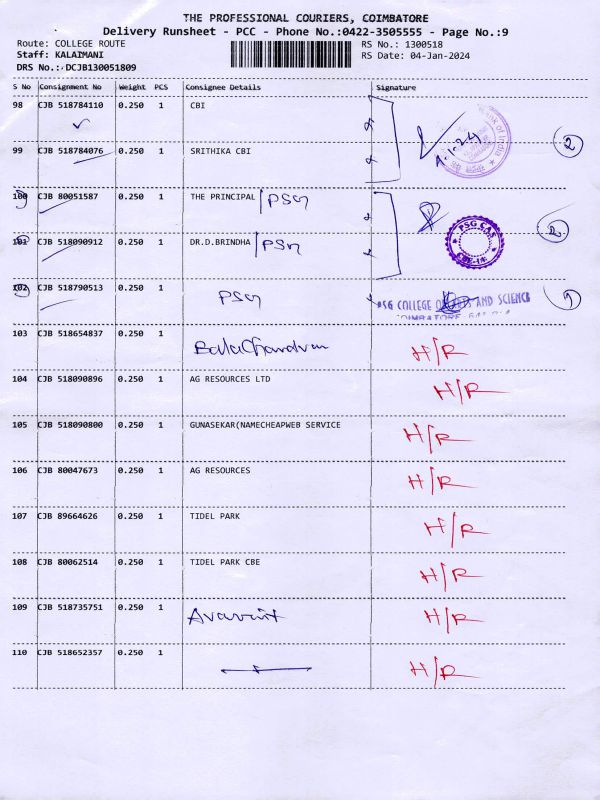 THE PROFESSIONAL COURIERS, COIMBATORE
Delivery Runsheet - PCC - Phone No.:0422-3505555 - Page No.:9
Route: COLLEGE ROUTE RS No.: 1300518
Staff: KALAIMANI RS Date: 04-Jan-2024
DRS No.: DCJB130051809
S No Consignment No Weight PCS Consignee Details Signature
98 CJB 518784110 0.250 1 CBI
99 CJB 518784076 0.250 1 SRITHIKA CBI 2
100 CJB 80051587 0.250 1 THE PRINCIPAL PSG
101 CJB 518090912 0.250 1 DR.D.BRINDHA PSG PSG CAS 2
102 CJB 518790513 0.250 1 PSG PSG COLLEGE OF ARTS AND SCIENCE
COIMBATORE
103 CJB 518654837 0.250 1 BalaChandran H/R
104 CJB 518090896 0.250 1 AG RESOURCES LTD H/R
105 CJB 518090800 0.250 1 GUNASEKAR(NAMECHEAPWEB SERVICE H/R
106 CJB 80047673 0.250 1 AG RESOURCES H/R
107 CJB 89664626 0.250 1 TIDEL PARK H/R
108 CJB 80062514 0.250 1 TIDEL PARK CBE H/R
109 CJB 518735751 0.250 1 H/R
110 CJB 518652357 0.250 1 H/R